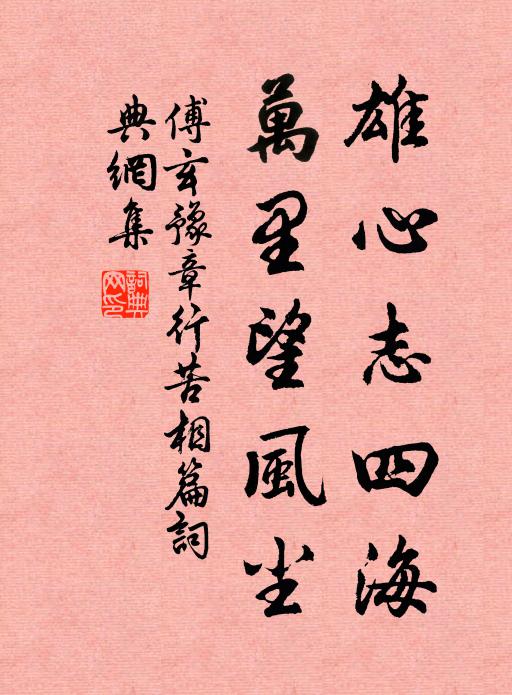 雄心志四海
萬里望風尘
傅玄豫章行苦相篇詞
典網集
詞典
网印